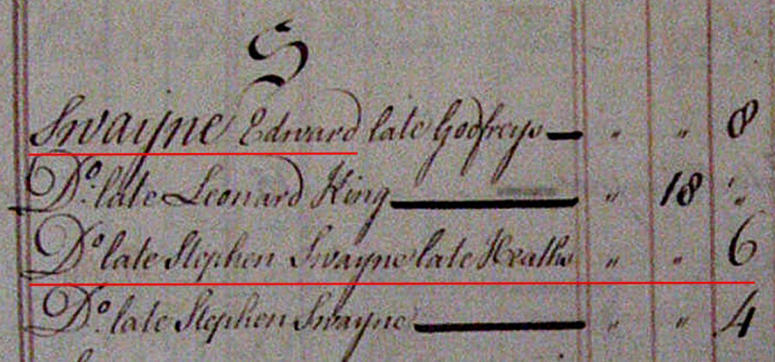 S
Swayne Edward late Godfreys — " " 8
Do. late Leonard King — " 18 "
Do. late Stephen Swayne late Heaths " " 6
Do. late Stephen Swayne — " " 4